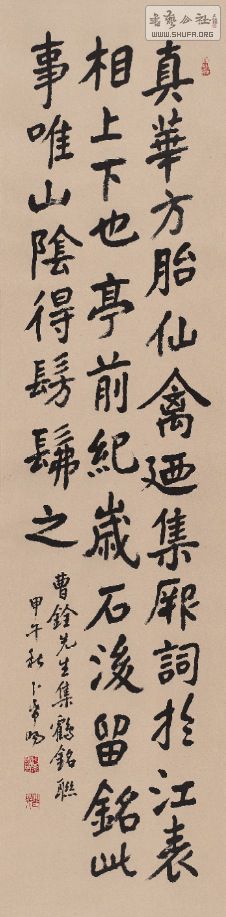 真華方胎仙禽廼集厥詞於江表
相上下也亭前紀歲石後留銘此
事唯山陰得髣髴之
曹銓先生集鶴銘聯
甲午秋卜希暘
書藝公社
WWW.SHUFA.ORG